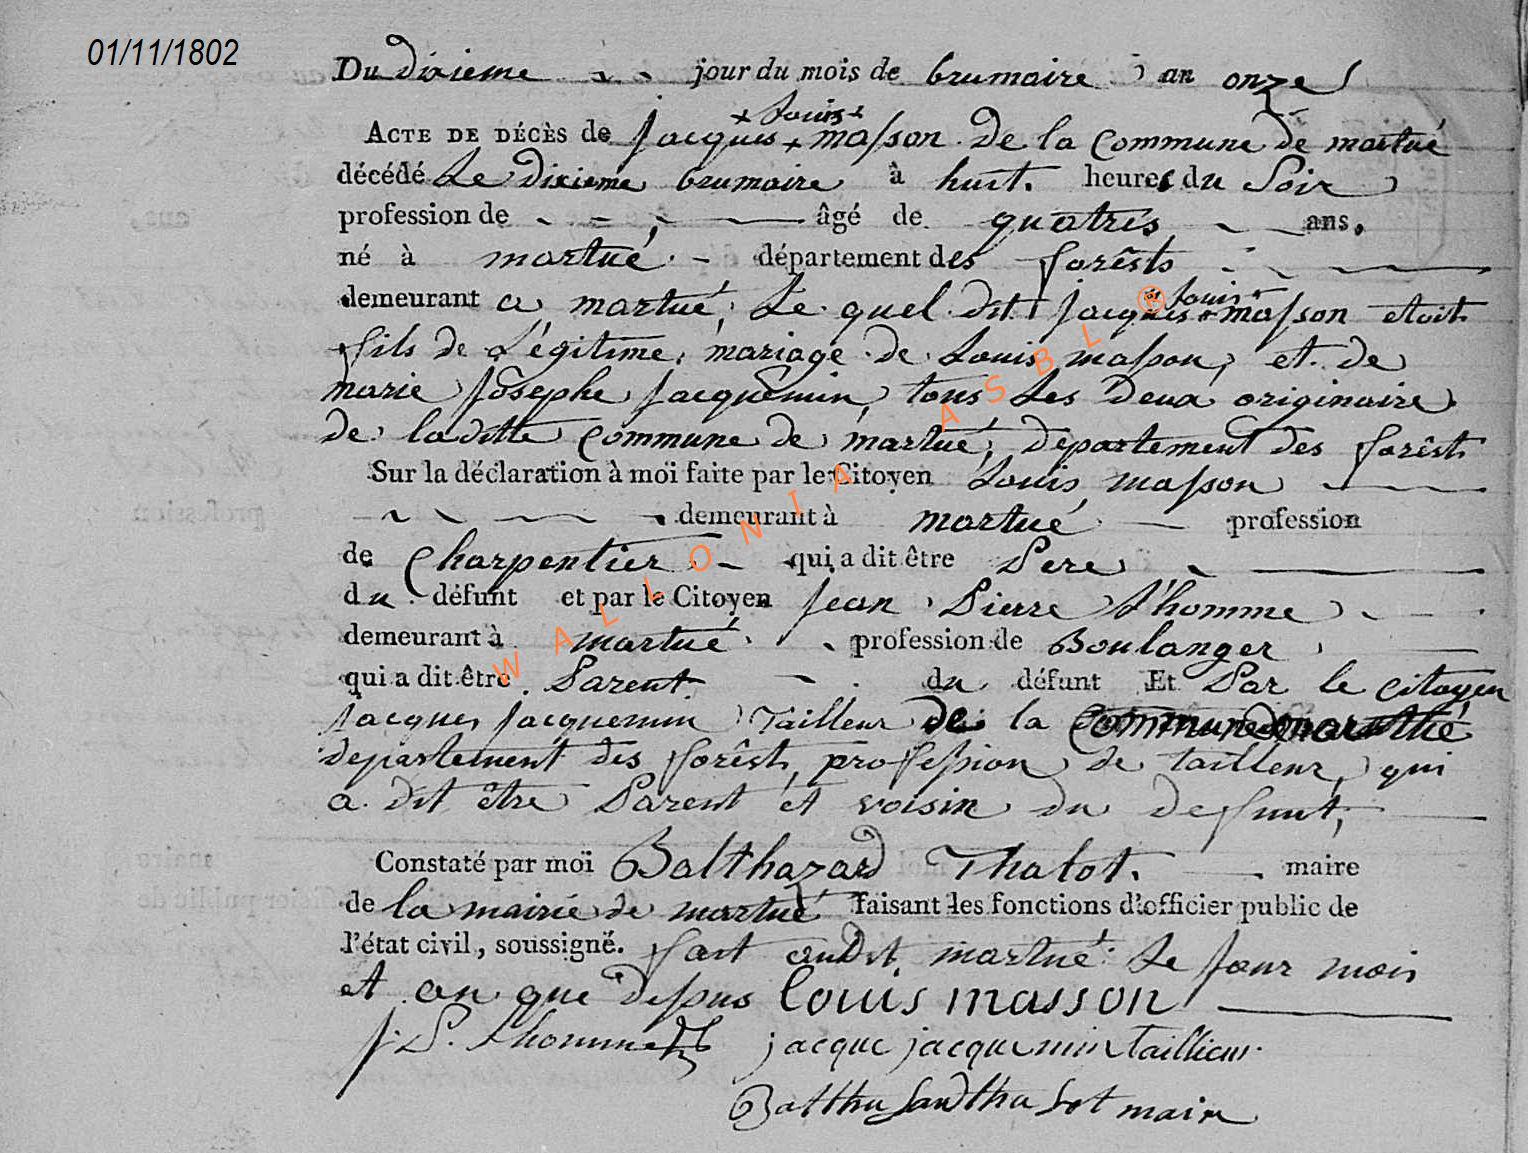 01/11/1802
Du dixieme jour du mois de brumaire an onze
+ Louis +
ACTE DE DÉCÈS de Jacques + masson de la Commune de martué
décédé Le dixieme brumaire à huit heures du Soir
profession de âgé de quatres ans.
né à martué département des forêsts
Louis +
demeurant a martué, Le quel dit Jacques + masson etoit
fils de Légitime mariage de Louis masson, et de
marie Josephe Jacquemin, tous Les Deux originaire
de laditte Commune de martué, département des forêsts
Sur la déclaration à moi faite par le Citoyen Louis masson
demeurant à martué profession
de Charpentier qui a dit être Pere
du défunt et par le Citoyen Jean Pierre Lhomme
demeurant à martué profession de Boulanger
qui a dit être Parent du défunt Et Par le Citoyen
Jacques Jacquemin Tailleur de la Commune martué
departement des forêsts, profession de tailleur, qui
a dit être Parent et voisin du defunt,
Constaté par moi Balthazard Thalot maire
de la mairie de martué faisant les fonctions d'officier public de
l'état civil, soussigné. fait audit martué Le Jour mois
et an que dessus Louis masson
J. P. Lhomme jacque jacquemin taillieur
maire
WALLONIA ASBL ®